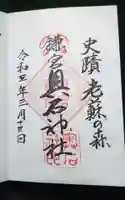 史蹟 老蘇の森
鎌宮奥石神社
令和五年三月日